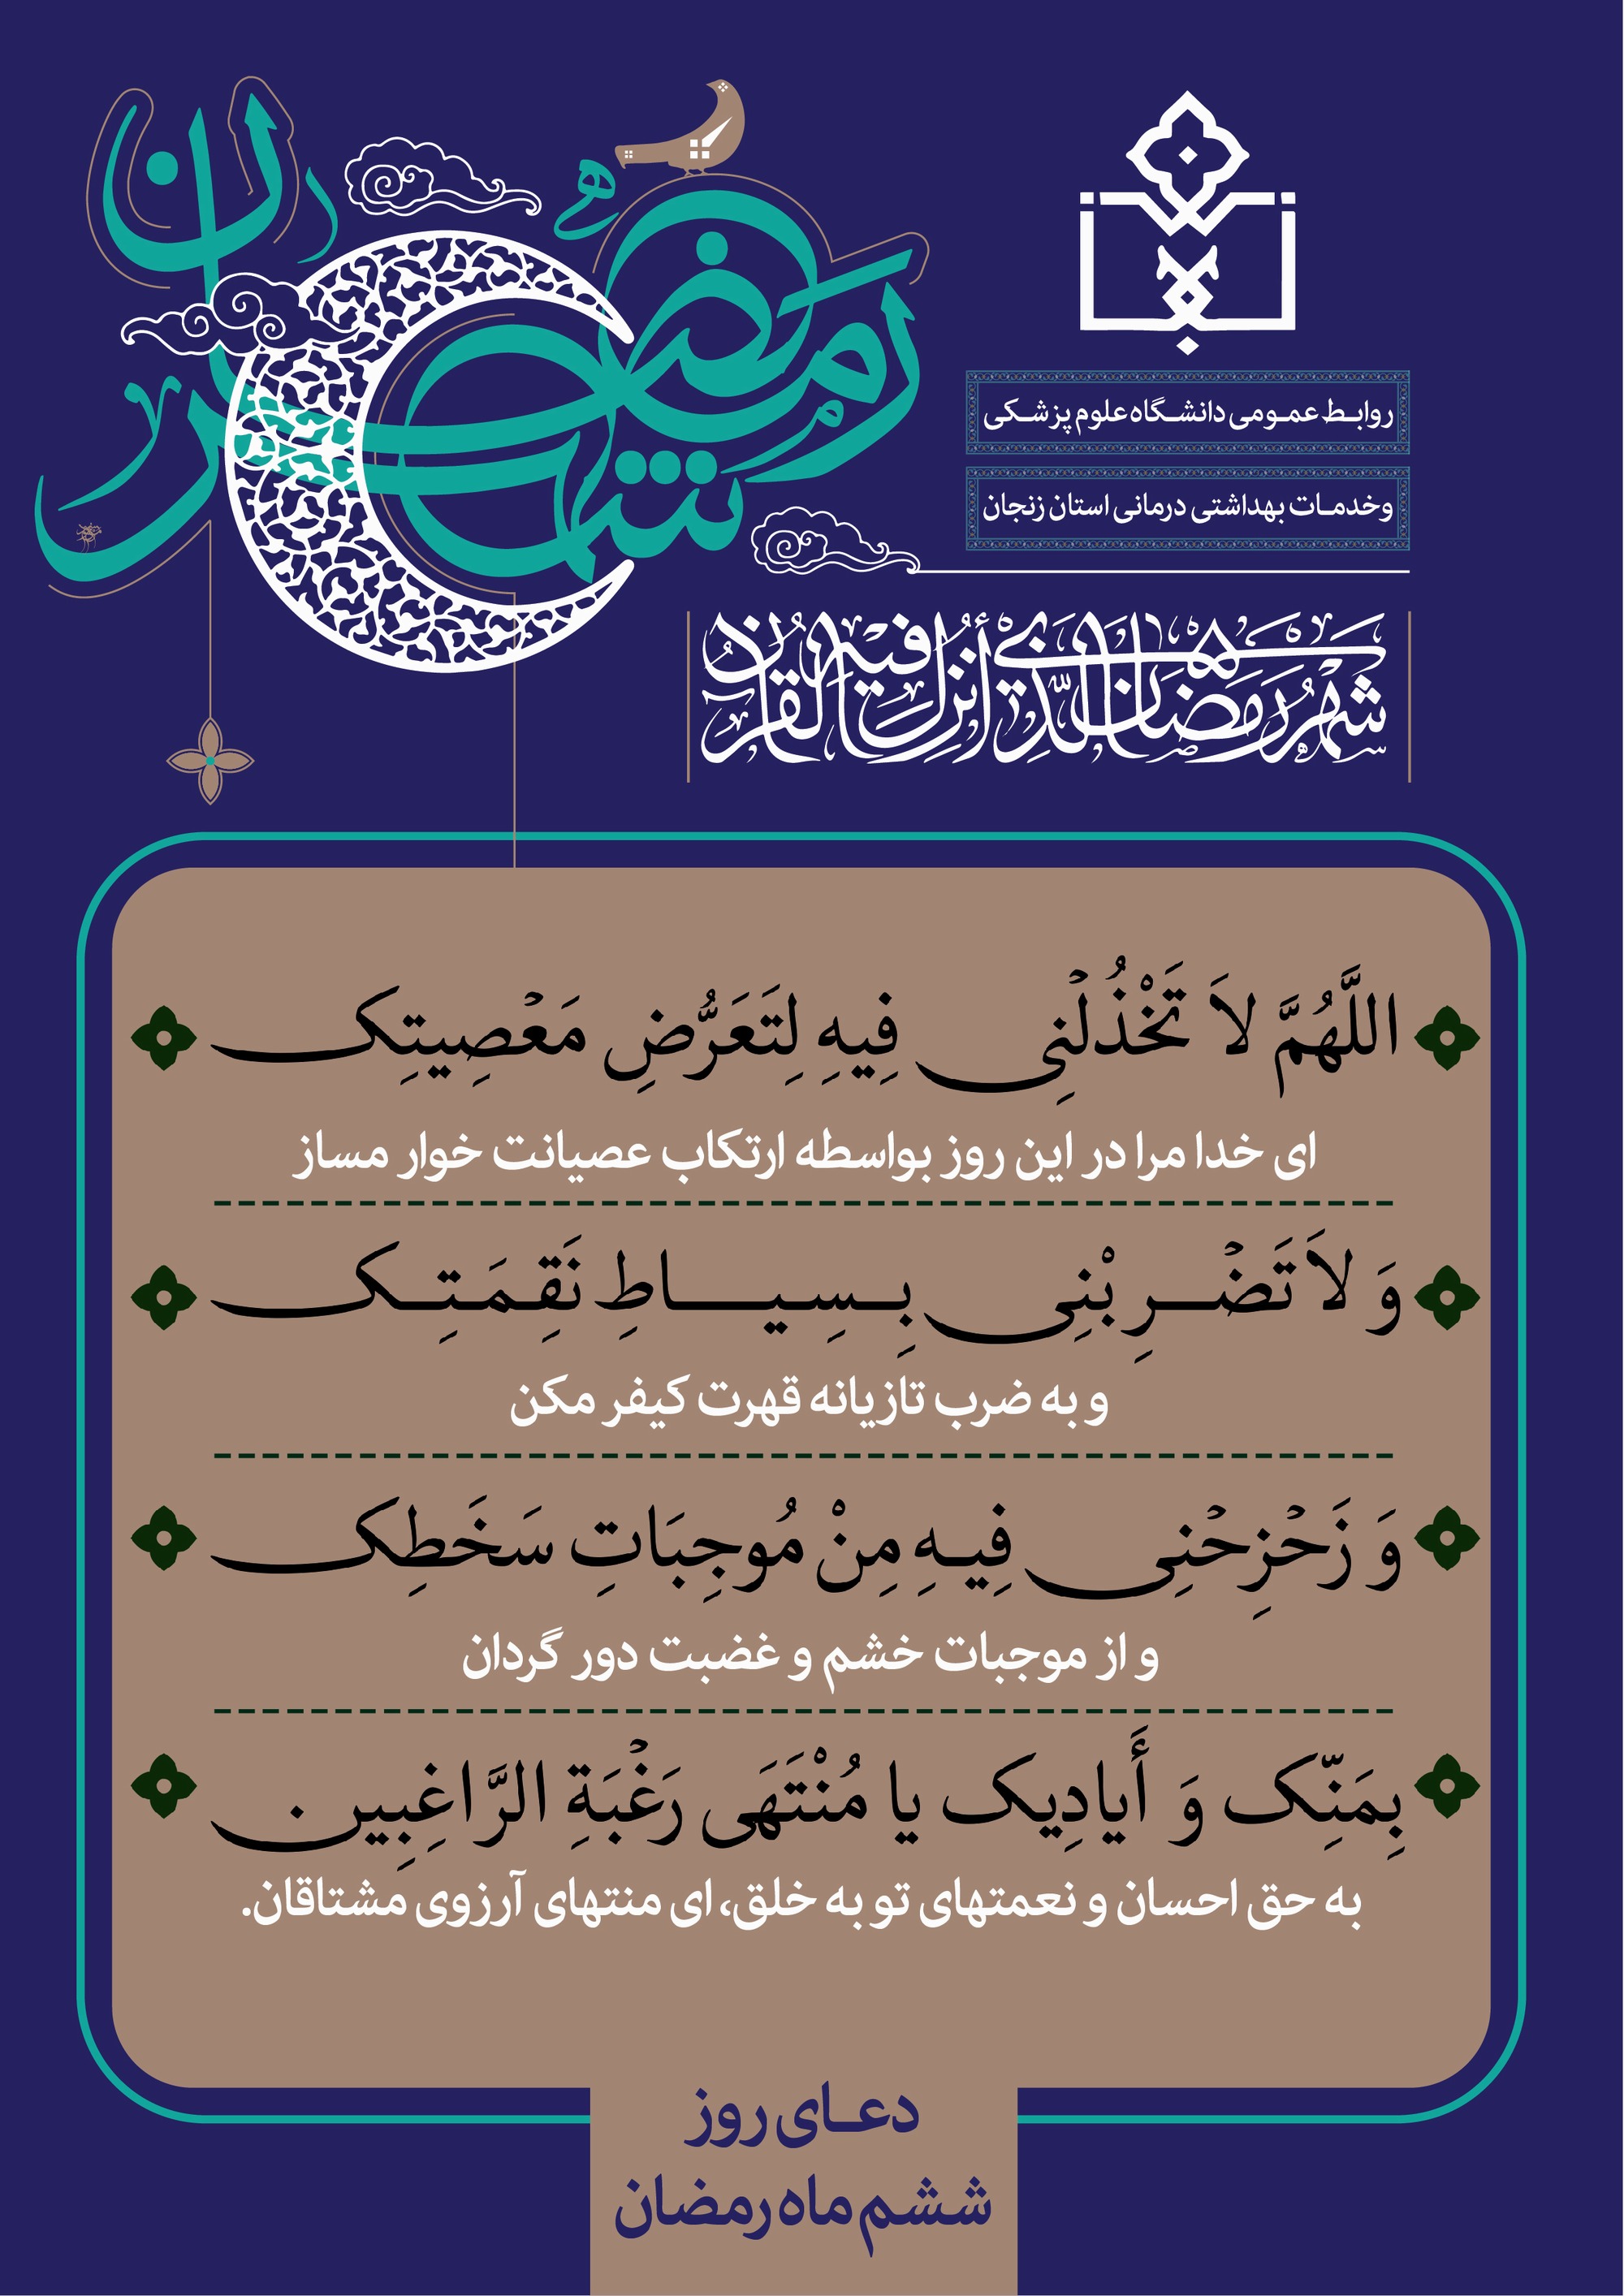 شهر رمضان
روابط عمومی دانشگاه علوم پزشکی
وخدمات بهداشتی درمانی استان زنجان
شهر رمضان الذی أنزل فیه القرآن
اللَّهُمَّ لاَ تَخْذُلْنِی فِیهِ لِتَعَرُّضِ مَعْصِیَتِک
ای خدا مرا در این روز بواسطه ارتکاب عصیانت خوار مساز
وَ لاَ تَضْرِبْنِی بِسِیاطِ نَقِمَتِک
و به ضرب تازیانه قهرت کیفر مکن
وَ زَحْزِحْنِی فِیهِ مِنْ مُوجِبَاتِ سَخَطِک
و از موجبات خشم و غضبت دور گردان
بِمَنِّک وَ أَیادِیک یا مُنْتَهَی رَغْبَةِ الرَّاغِبِیر .
به حق احسان و نعمتهای تو به خلق، ای منتهای آرزوی مشتاقان.
دعای روز
ششم ماه رمضان